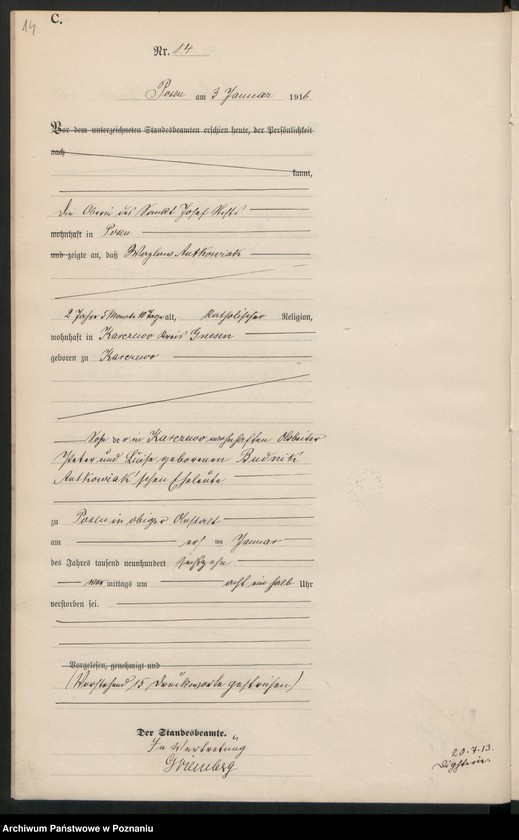 14
C.
Nr. 14
Posen am 3 Januar 1916
Vor dem unterzeichneten Standesbeamten erschien heute, der Persönlichkeit
nach
kannt,
Die Oberin des Sankt Josef Stifts
wohnhaft in Posen
und zeigte an, daß Wazlaw Antkowiak
2 Jahre 5 Monate 10 Tage alt, katholischer Religion,
wohnhaft in Karczewo Kreis Gnesen
geboren zu Karczewo
Sohn der in Karczewo wohnhaften Arbeiter
Peter und Luise geborenen Budnik
Antkowiak'schen Eheleute
zu Posen in obiger Anstalt
am ersten Januar
des Jahres tausend neunhundert sechzehn
vor mittags um acht ein halb Uhr
verstorben sei.
Vorgelesen, genehmigt und
(Vorstehend 15 Druckworte gestrichen)
Der Standesbeamte.
In Vertretung
20.7.13.
Archiwum Państwowe w Poznaniu